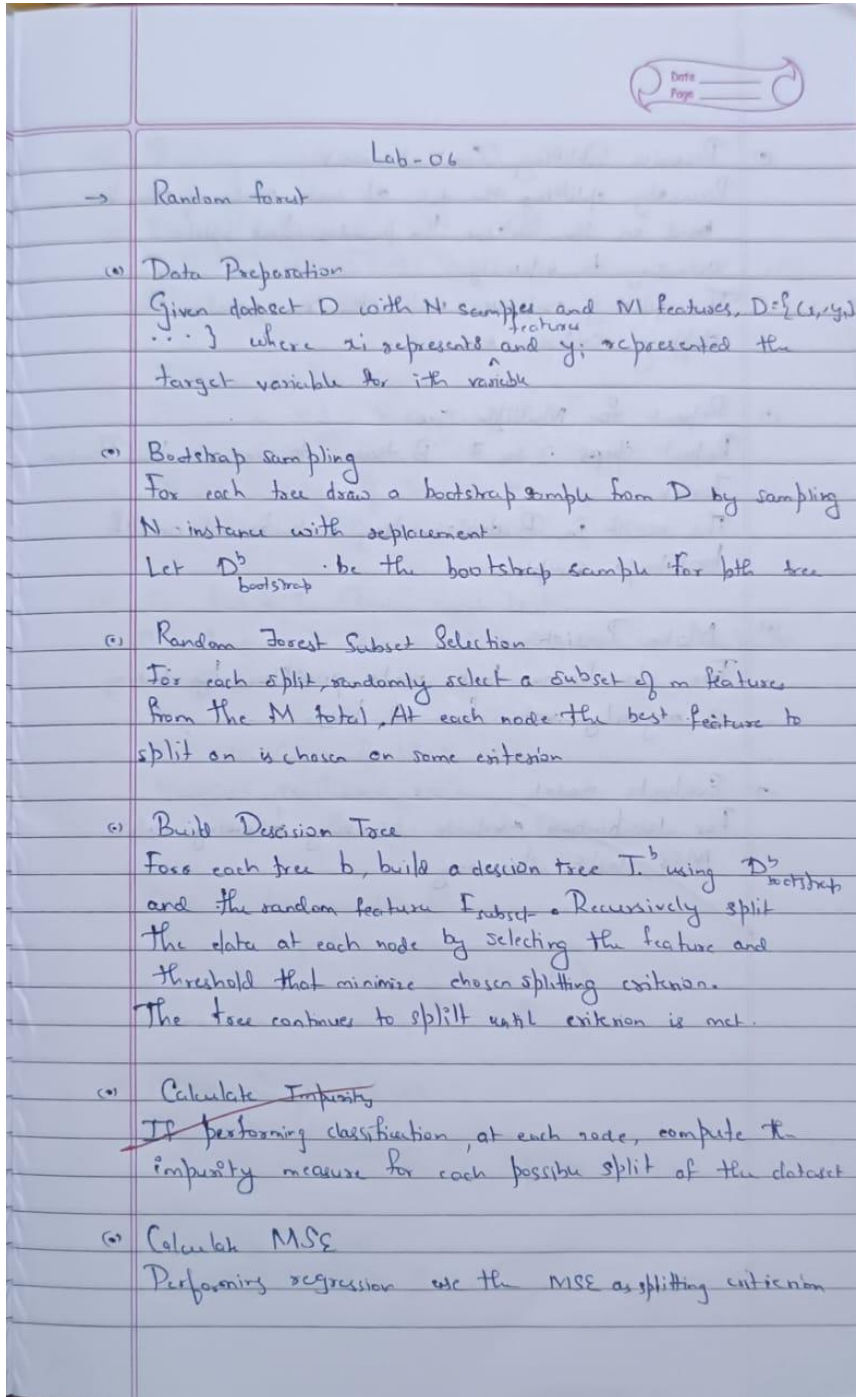 Date
Page
Lab-06
→ Random forest
(•) Data Preparation
Given dataset D with N samples and M features, D={(x,,y,)
... } where xi represents feature and yi represented the
target variable for ith variable
(•) Bootstrap sampling
For each tree draw a bootstrap sample from D by sampling
N instance with replacement.
Let D^b_bootstrap be the bootstrap sample for bth tree
(•) Random Forest Subset Selection
For each split, randomly select a subset of m features
from the M total, At each node the best feature to
split on is chosen on some criterion
(•) Build Descision Tree
Foss each tree b, build a descion tree T.^b using D^b_bootstrap
and the random feature F_subset. Recursively split
the data at each node by selecting the feature and
threshold that minimize chosen splitting criterion.
The tree continues to splilt until criterion is met.
(•) Calculate Impurity
If performing classification, at each node, compute the
impurity measure for each possible split of the dataset
(•) Calculate MSE
Performing regression use the MSE as splitting criterion